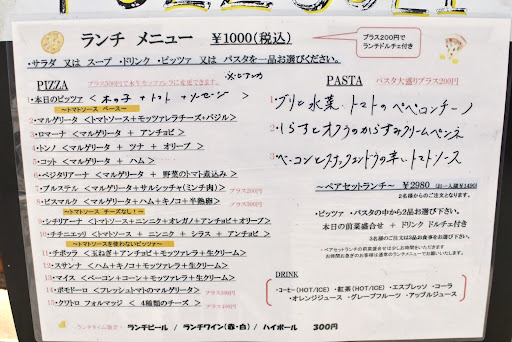 ランチ メニュー ¥1000(税込)
プラス200円で
ランチドルチェ付き
・サラダ 又は スープ ・ドリンク ・ピッツァ 又は パスタを一品お選びください。
PIZZA
プラス300円で水牛モッツァレラに変更できます。
1・本日のピッツァ < 木の子 + トマト + ソーセージ >
～トマトソース ベース～
2・マルゲリータ <トマトソース+モッツァレラチーズ・バジル>
3・ロマーナ <マルゲリータ + アンチョビ>
4・トンノ <マルゲリータ + ツナ + オリーブ>
5・コット <マルゲリータ + ハム>
6・ベジタリアーナ <マルゲリータ + 野菜のトマト煮込み>
7・ブルステル <マルゲリータ+サルシッチャ(ミンチ肉)> プラス200円
8・ビスマルク <マルゲリータ+ハム+キノコ+半熟卵> プラス300円
～トマトソース チーズなし!～
9・シチリアーナ <トマトソース+ニンニク+オレガノ+アンチョビ+オリーブ>
10・チチニエッリ <トマトソース + ニンニク + シラス + アンチョビ>
～トマトソースを使わないピッツァ～
11・チポッラ <玉ねぎ+アンチョビ+モッツァレラ+生クリーム>
12・スサンナ <ハム+キノコ+モッツァレラ+生クリーム>
13・マイス <ベーコン+コーン+モッツァレラ+生クリーム>
14・ポモドーロ <フレッシュトマトのマルゲリータ>
15・クワトロ フォルマッジ < 4種類のチーズ >
ランチタイム限定! ランチビール / ランチワイン(赤・白) / ハイボール 300円
PASTA
パスタ大盛りプラス200円
1・ブリと水菜、トマトのペペロンチーノ
2・しらすとオクラのからすみクリームペンネ
3・ベーコンと
の辛いトマトソース
～ペアセットランチ～ ¥2980 (お一人様¥1490)
2名様からのご注文となります。
・ピッツァ ・パスタの中から2品お選び下さい。
本日の前菜盛合せ + ドリンク ドルチェ付き
3名様のご注文は3品お食事をお選び下さい。
・ペアセットランチの前菜盛合せは少しお時間をいただきます
お時間お急ぎのお客様は通常のランチメニューでお願いいたします。
DRINK
・コーヒー(HOT/ICE) ・紅茶(HOT/ICE) ・エスプレッソ ・コーラ
・オレンジジュース ・グレープフルーツ ・アップルジュース